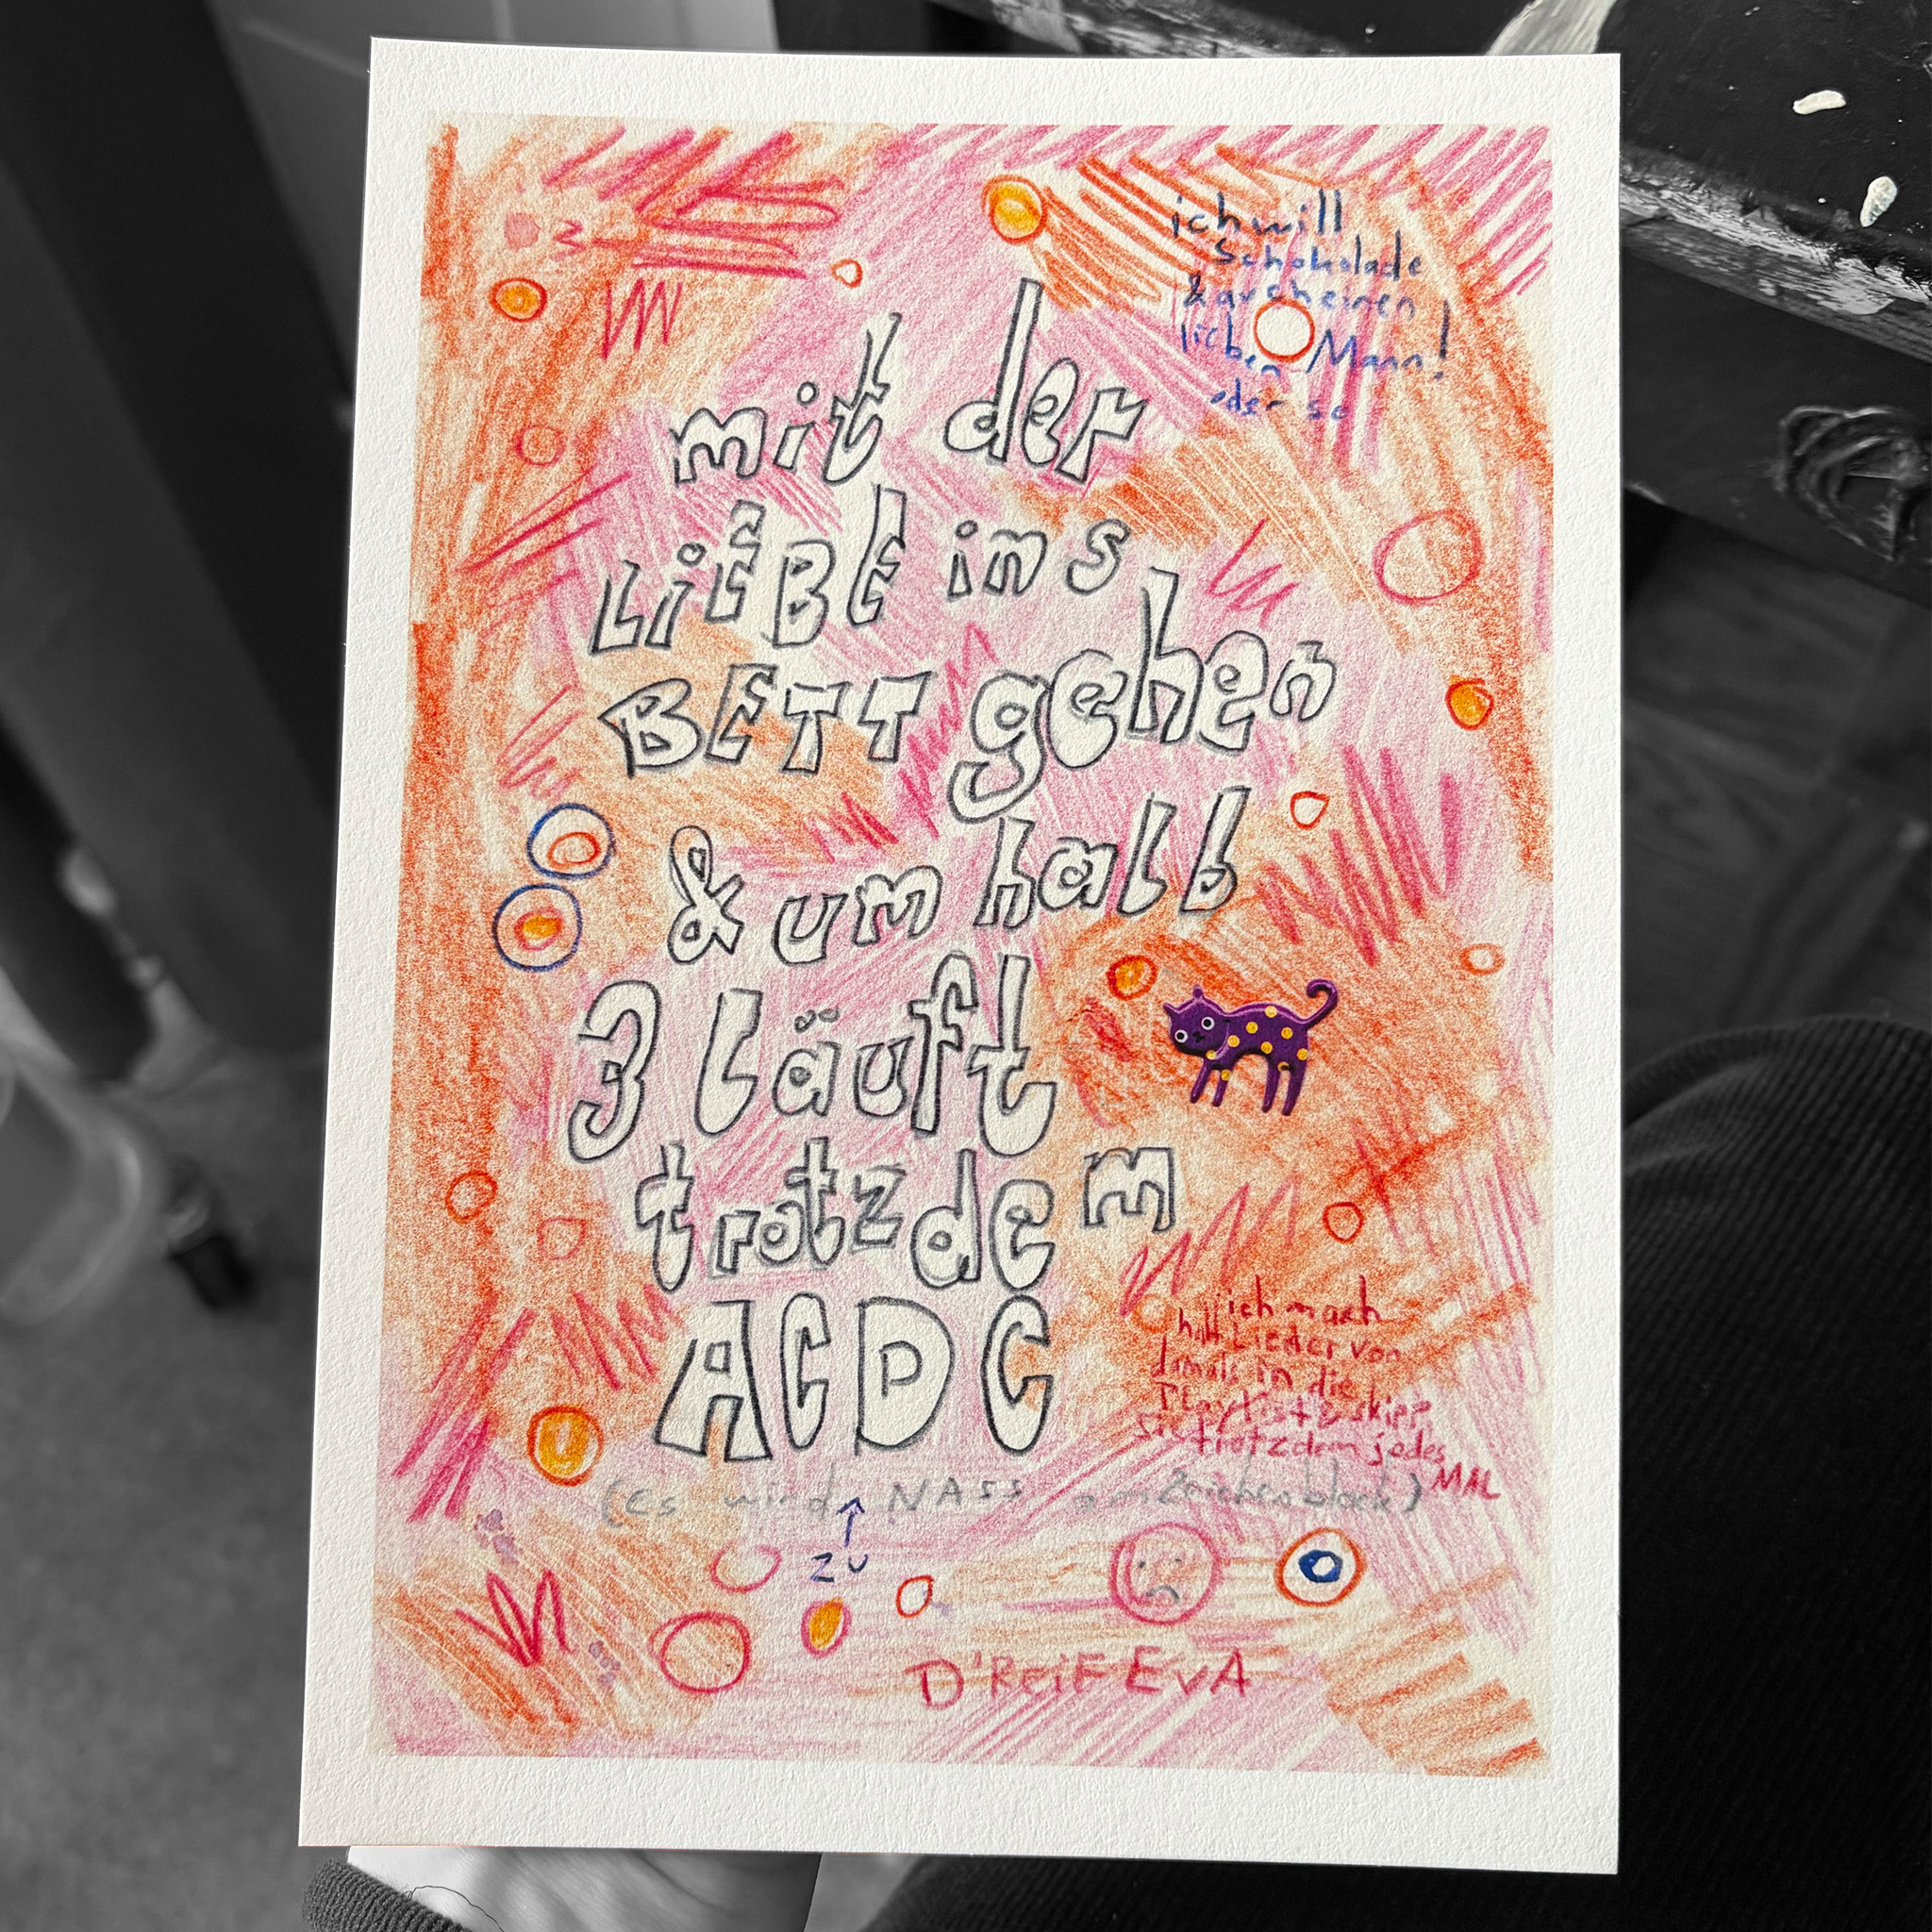 ich will
Schokolade
& auch einen
lieben Mann!
oder so
mit der
LiEBE ins
BETT gehen
& um halb
3 läuft
trotzdem
ACDC
ich mach
halt Lieder von
damals in die
Playlist & skipp
sie trotzdem jedes
MAL
(es wird NASS am Zeichenblock)
zu
D'REiF EvA